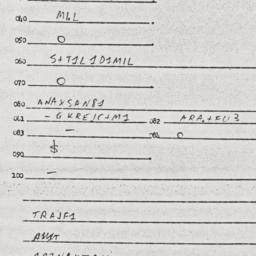 040 MLL
050 O
060 S+T1L1D1MIL
070 O
080 ANAXSAN81
081 -GKREJC+M1 082 ARA.+EU3
083 –
O
090 $
100 –
TRAJF1